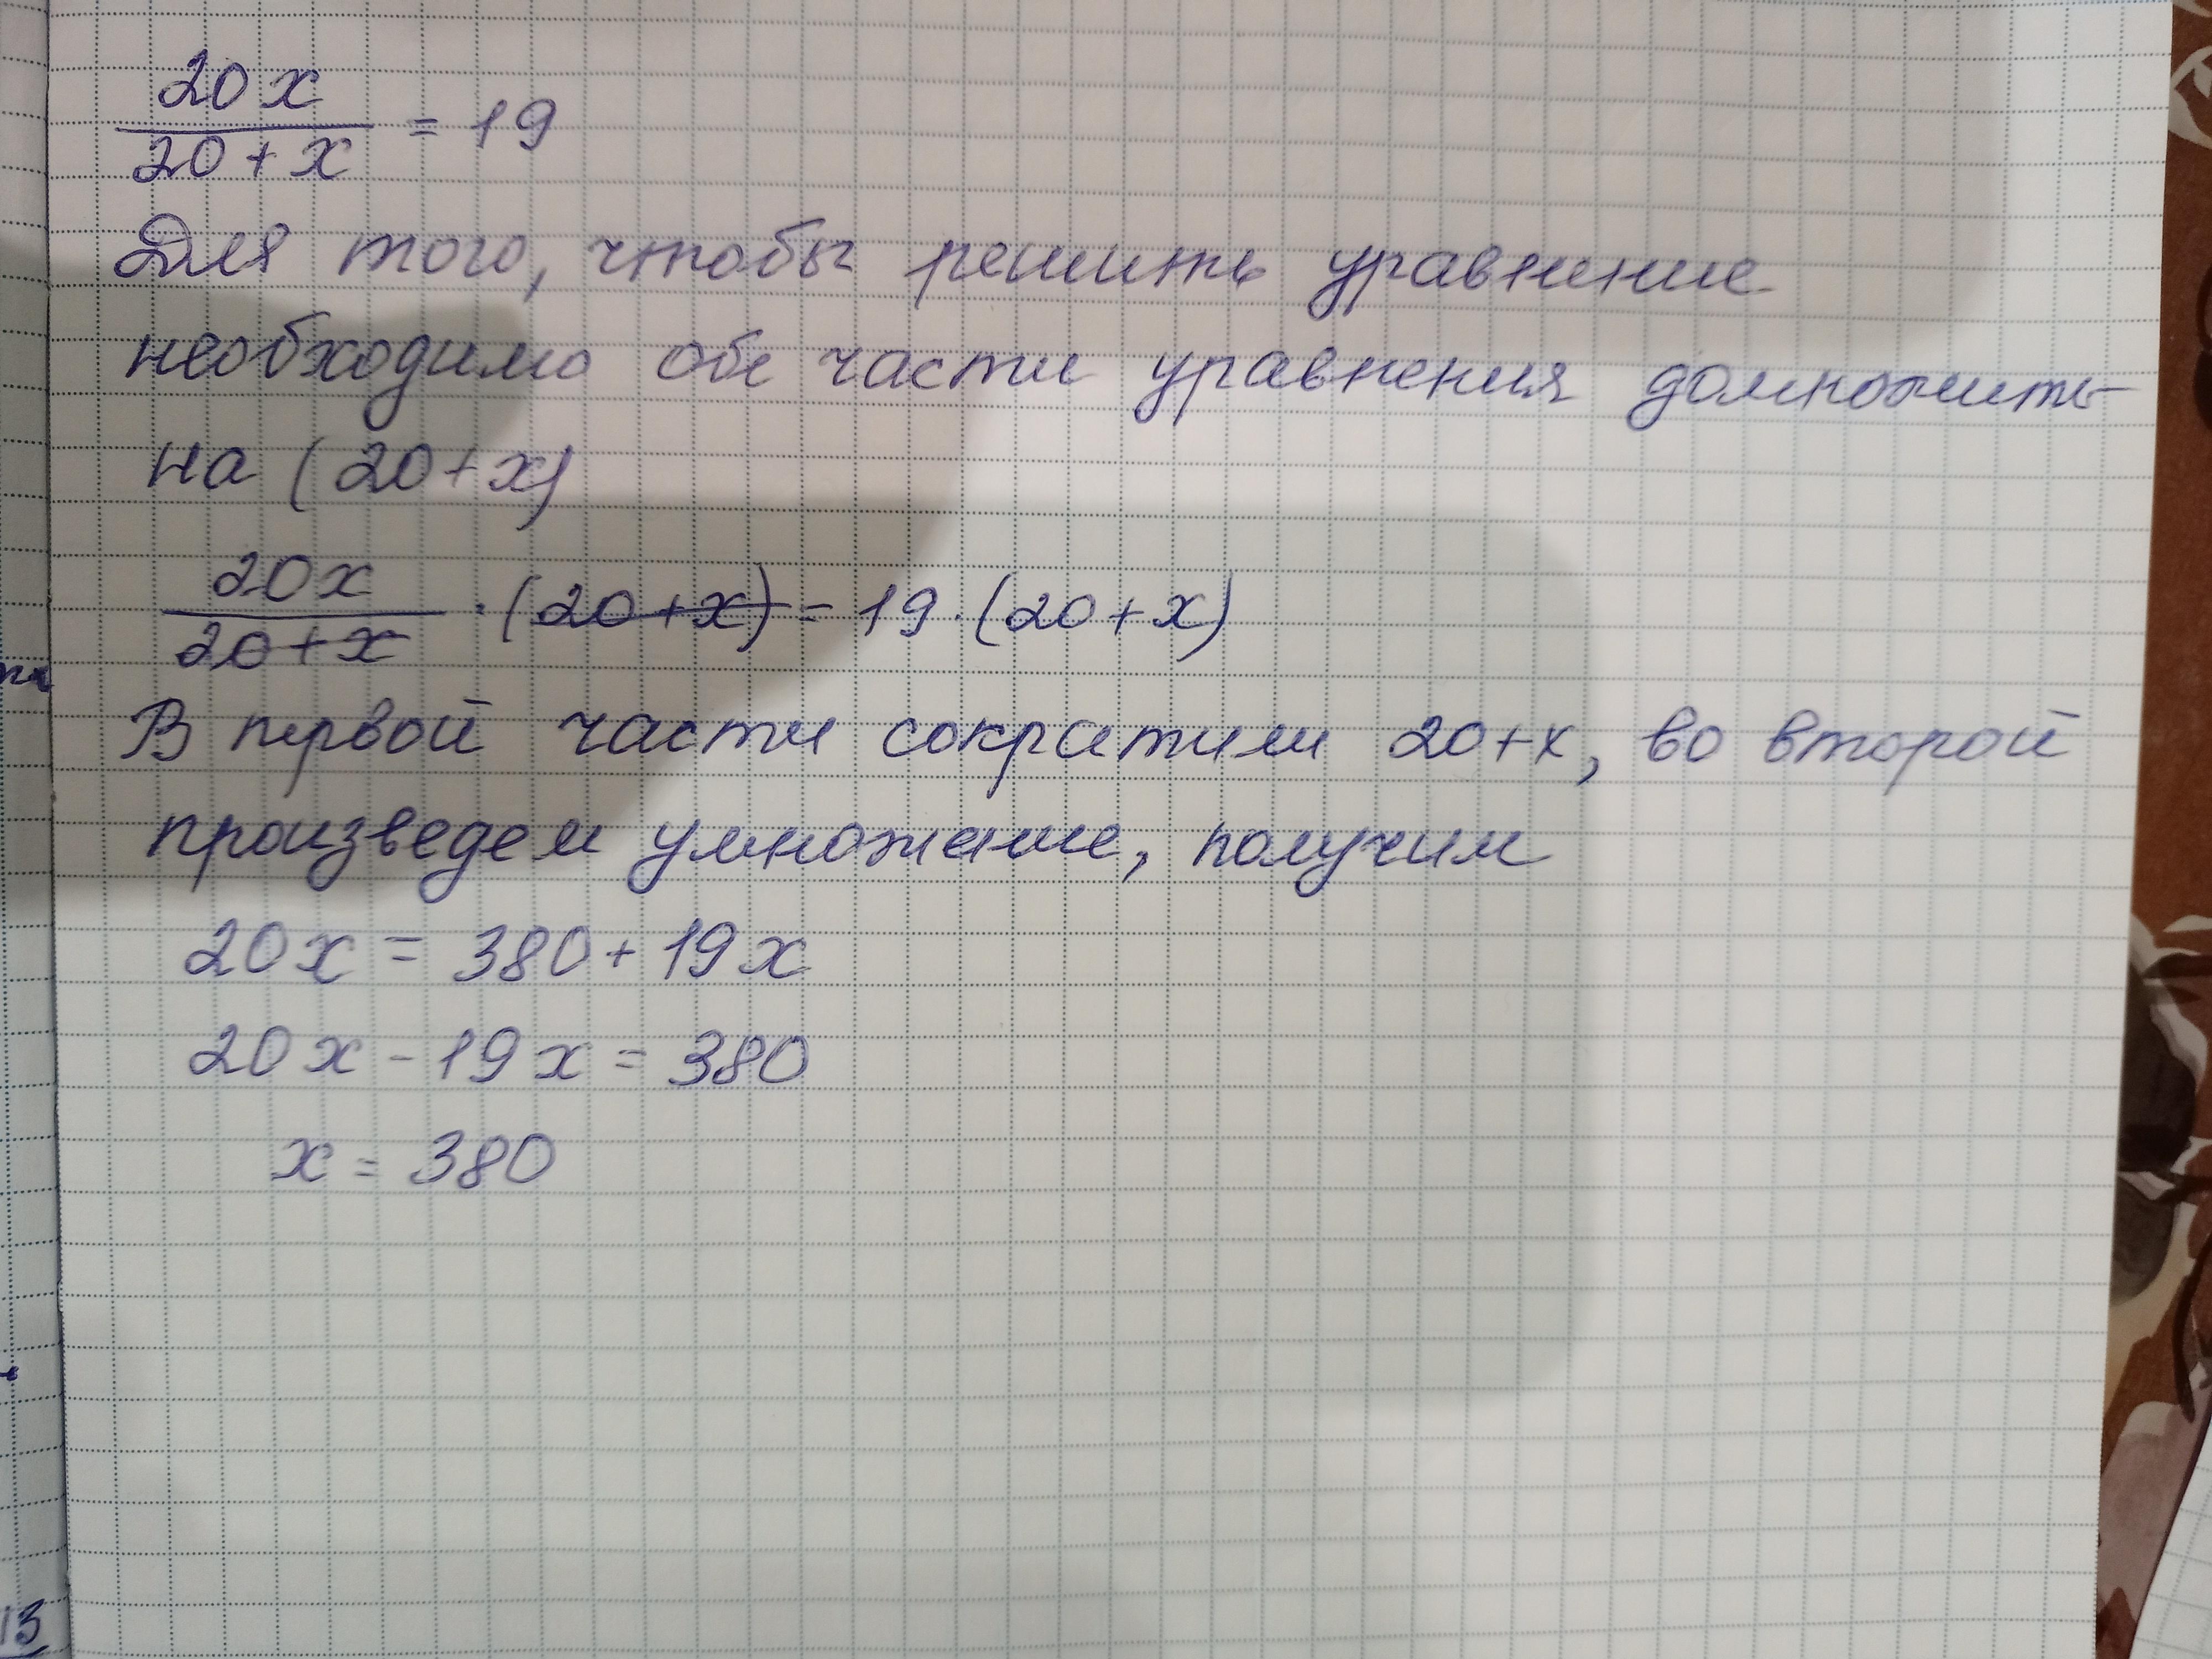 20x
20+x = 19
Для того, чтобы решить уравнение
необходимо обе части уравнения домножить
на (20+x)
20x
20+x · (20+x) = 19·(20+x)
В первой части сократим 20+x, во второй
произведем умножение, получим
20x = 380+19x
20x-19x = 380
x = 380
13